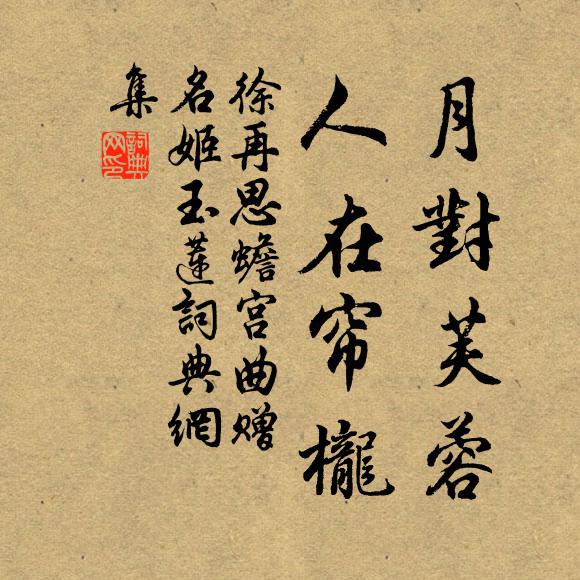 月對芙蓉
人在帘櫳
徐再思蟾宫曲赠
名姬玉蓮詞典網
集
詞典
网印